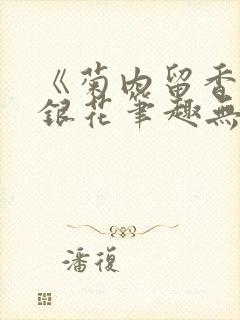 《菊内留香
銀花筆趣無
潘復